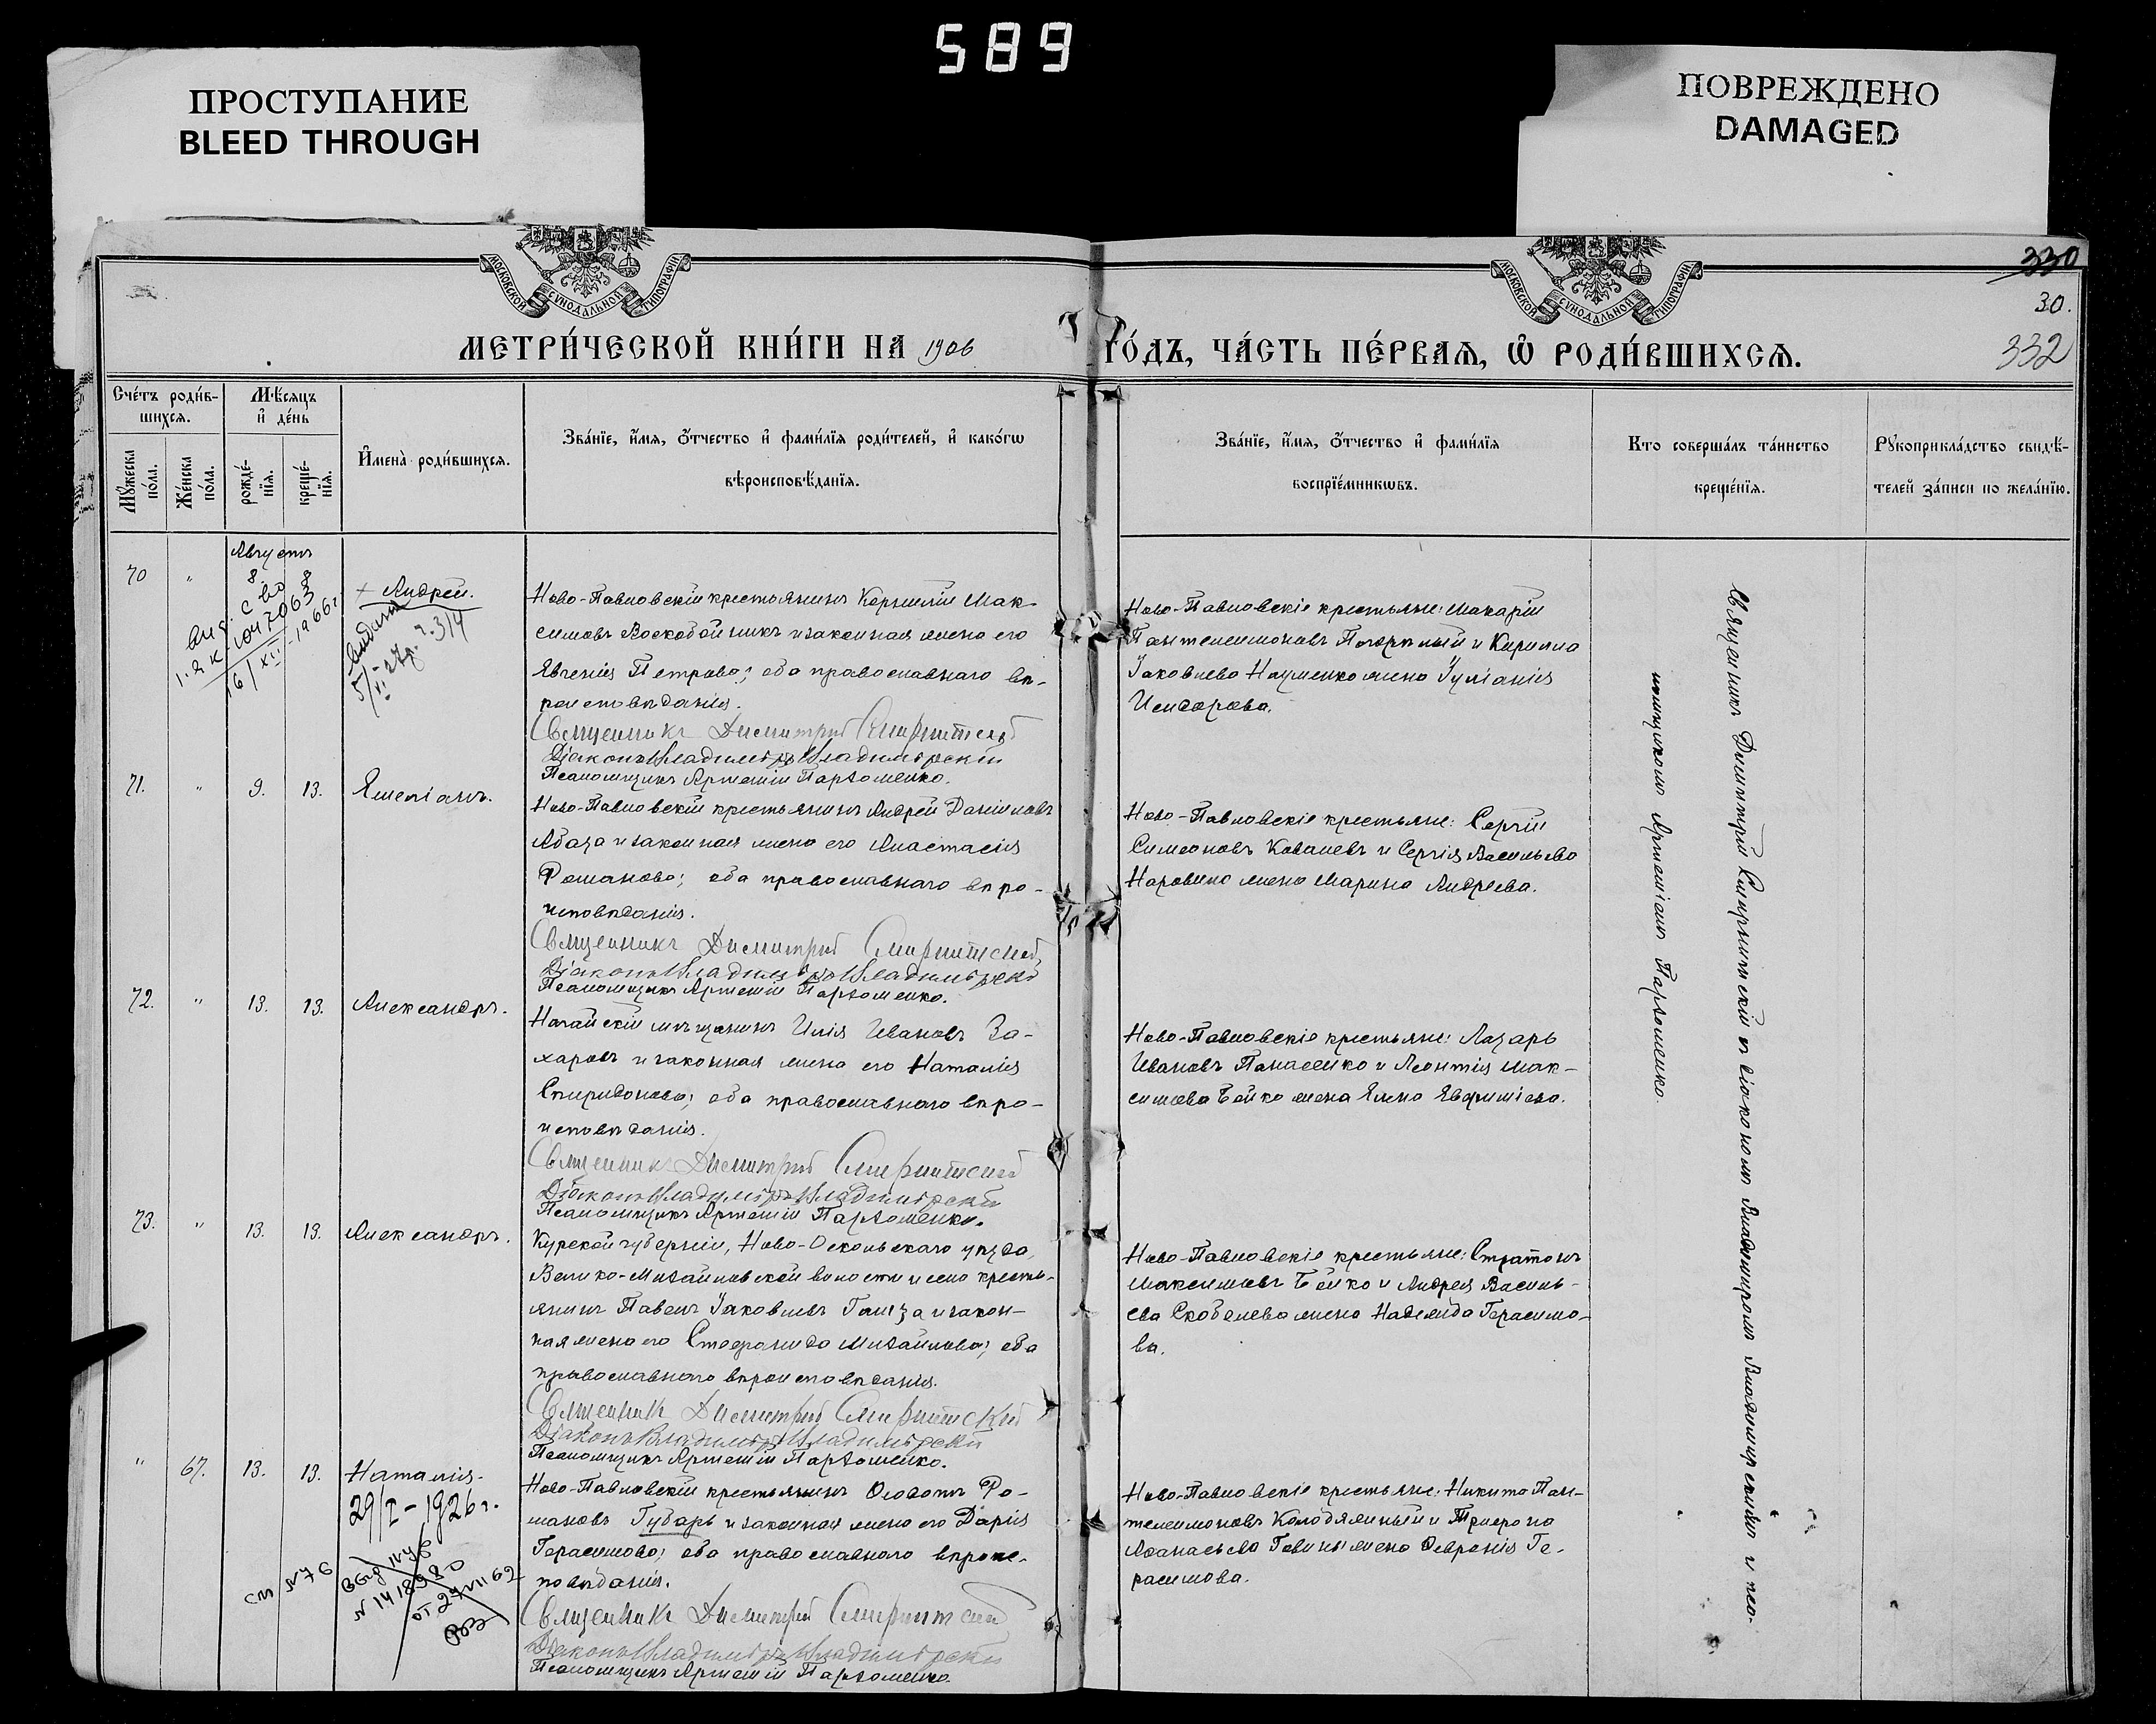 589
ПРОСТУПАНИЕ
BLEED THROUGH
ПОВРЕЖДЕНО
DAMAGED
МОСКОВСКОЙ СѴНОДАЛЬНОЙ ТИПОГРАФІИ
МОСКОВСКОЙ СѴНОДАЛЬНОЙ ТИПОГРАФІИ
330
30.
332
МЕТРИ́ЧЕСКОЙ КНИ́ГИ НА 1906
ГО́ДЪ, ЧА́СТЬ ПЕ́РВАѦ, Ѡ҆ РОДИ́ВШИХСѦ.
Сче́тъ роди́в-
шихсѧ.
Мѣ́сѧцъ
и҆ де́нь
Мꙋ́жеска
по́ла.
Же́нска
по́ла.
рожде́-
нїѧ.
креще́-
нїѧ.
И҆мена̀ роди́вшихсѧ.
Зва́нїе, и҆́мѧ, ѻ҆́тчество и҆ фами́лїѧ роди́телей, и҆ како́гѡ
вѣроисповѣ́данїѧ.
Зва́нїе, и҆́мѧ, ѻ҆́тчество и҆ фами́лїѧ
воспрїе́мникѡвъ.
Кто соверша́лъ та́инство
креще́нїѧ.
Рꙋкоприкла́дство свидѣ́-
телей за́писи по жела́нїю.
Августъ
70 " 8. 8 Андрей.
1047063
16/XII-1966г
314
Ново-Павловскій крестьянинъ Корнилій Мак-
симовъ Воскобойникъ и законная жена его
Евгенія Петрова; оба православнаго вѣ-
роисповѣданія.
Священникъ Димитрій
Діаконъ Владиміръ Владимірскій
Псаломщикъ Артемій Пархоменко.
Ново-Павловскіе крестьяне: Макарій
Пантелеимоновъ и Кирилла
Іаковлева Науменко жена Іуліанія
Исидорова.
71. " 9. 13. Емеліанъ.
Ново-Павловскій крестьянинъ Андрей Даніиловъ
Абаза и законная жена его Анастасія
Романова; оба православнаго вѣро-
исповѣданія.
Священникъ Димитрій
Діаконъ Владиміръ Владимірскій
Псаломщикъ Артемій Пархоменко.
Ново-Павловскіе крестьяне: Сергій
Симеоновъ Ковалевъ и Сергія Васильева
жена Марина Андреева.
72. " 13. 13. Александръ.
Ногайскій мѣщанинъ Илія Ивановъ За-
харовъ и законная жена его Наталія
Спиридонова; оба православнаго вѣро-
исповѣданія.
Священникъ Димитрій
Діаконъ Владиміръ Владимірскій
Псаломщикъ Артемій Пархоменко.
Ново-Павловскіе крестьяне: Лазарь
Ивановъ Панасенко и Леонтія Мак-
симова Бойко жена Елена Евфиміева.
73. " 13. 13. Александръ.
Курской губерніи, Ново-Оскольскаго уѣзда,
Велико-Михайловской волости и села кресть-
янинъ Павелъ Іаковлевъ и закон-
ная жена его Стефанида Михайлова; оба
православнаго вѣроисповѣданія.
Священникъ Димитрій
Діаконъ Владиміръ Владимірскій
Псаломщикъ Артемій Пархоменко.
Ново-Павловскіе крестьяне: Стратонъ
Максимовъ Бойко и Андрея Василь-
ева Скобелева жена Надежда Герасимо-
ва.
" 67. 13. 13. Наталія.
29/I-1926г.
№76
№1418980
Ново-Павловскій крестьянинъ Ѳеодотъ Ро-
мановъ Губарь и законная жена его Дарія
Герасимова; оба православнаго вѣроис-
повѣданія.
Священникъ Димитрій
Діаконъ Владиміръ Владимірскій
Псаломщикъ Артемій Пархоменко.
Ново-Павловскіе крестьяне: Никита Пан-
телеимоновъ Колодяжный и Трифона
Аѳанасьева жена Ѳевронія Ге-
расимова.
Священникъ Димитрій съ діакономъ Владиміромъ Владимірскимъ и пса-
ломщикомъ Артеміемъ Пархоменко.